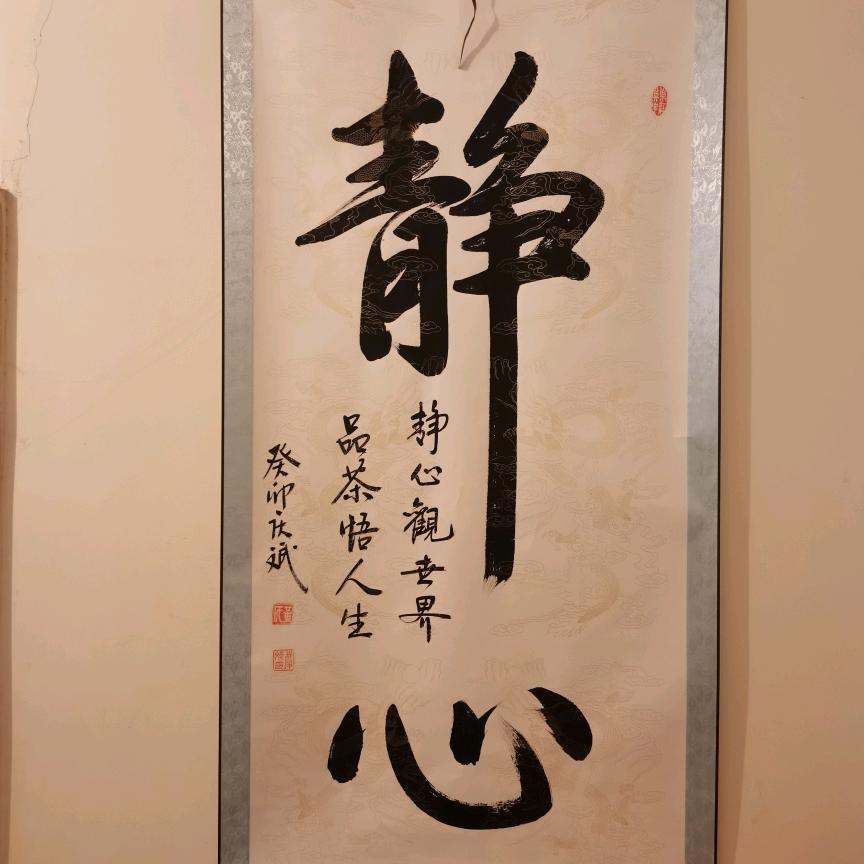 静心
静心觀世界
品茶悟人生
癸卯庆斌